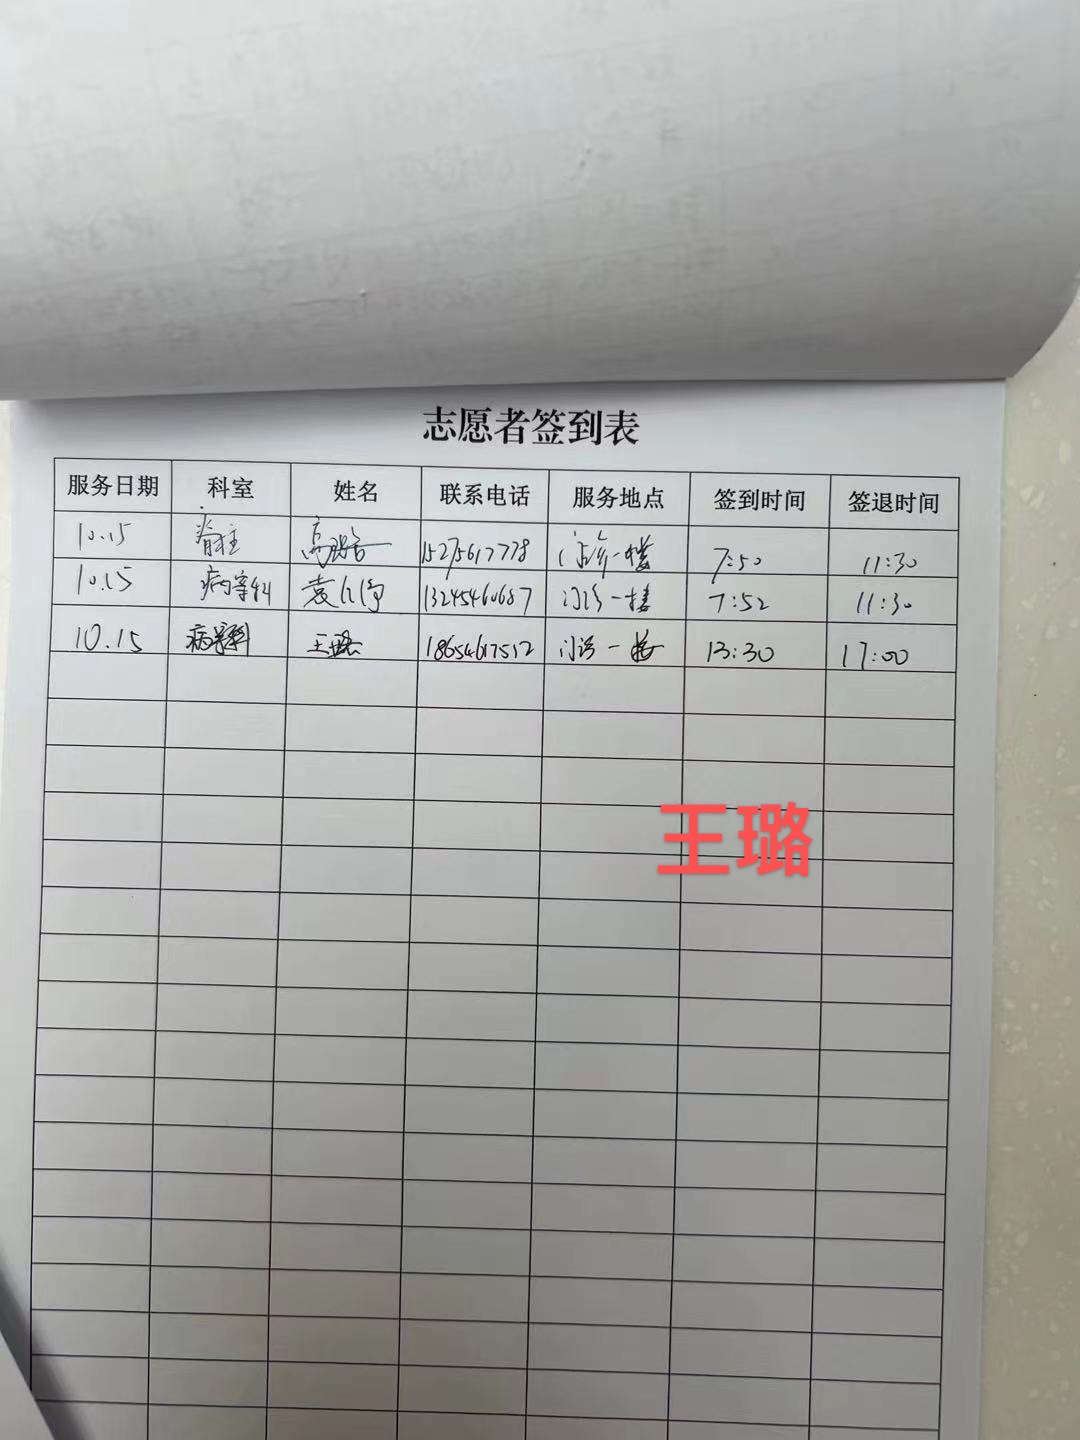 志愿者签到表
服务日期 科室 姓名 联系电话 服务地点 签到时间 签退时间
10.15 脊柱 高 15275617778 门诊一楼 7:50 11:30
10.15 病案科 袁 13245460687 门诊一楼 7:52 11:30
10.15 病案科 王璐 18654617512 门诊一楼 13:30 17:00
王璐